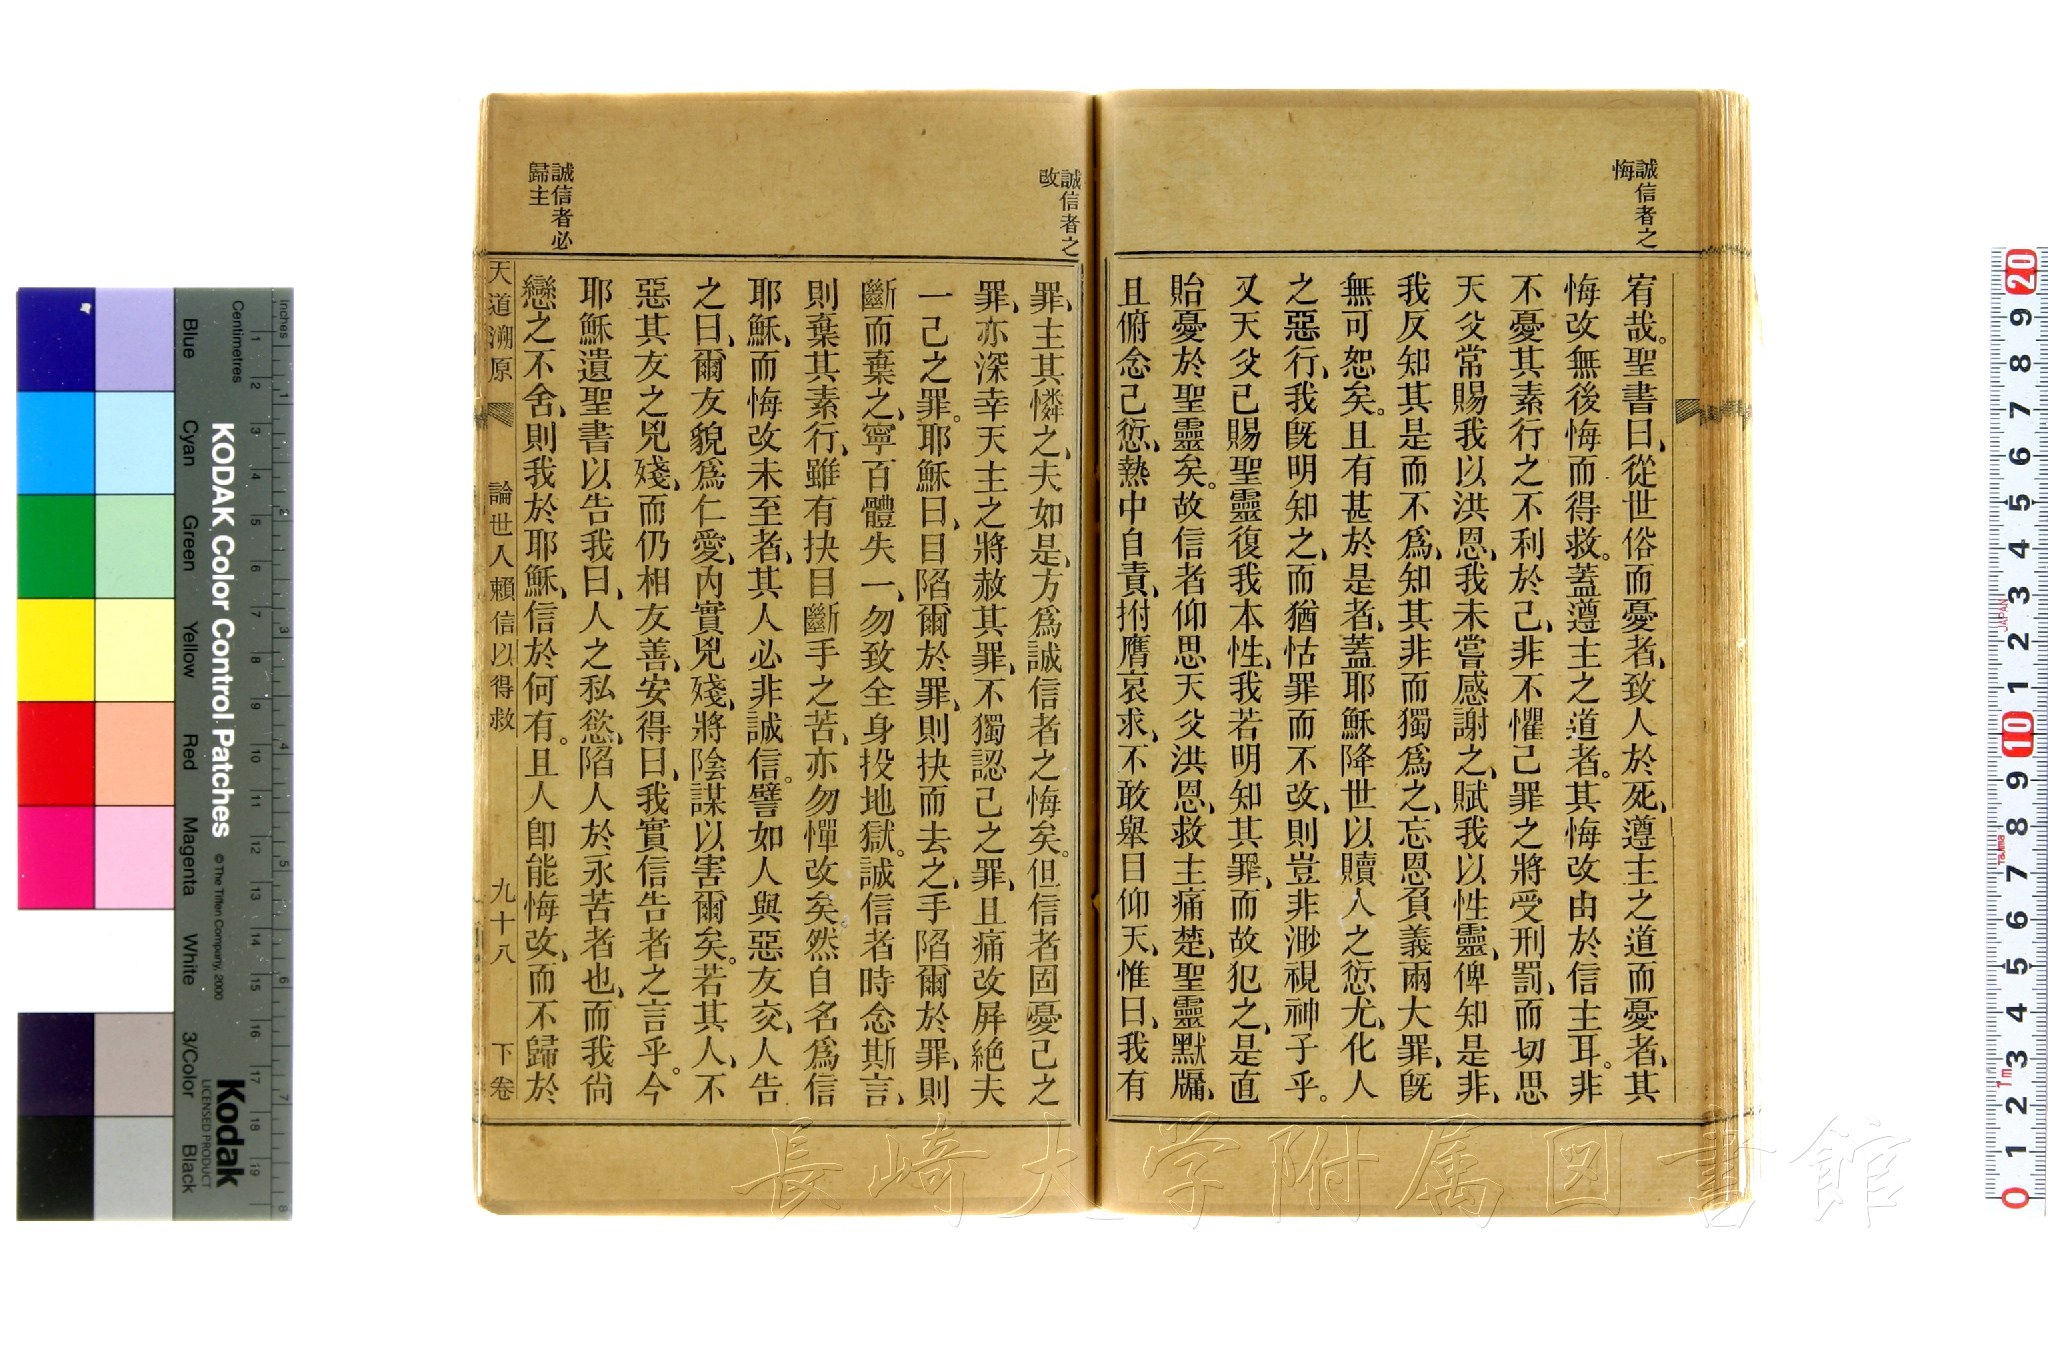 誠信者之
悔
宥哉。聖書曰、從世俗而憂者、致人於死、遵主之道而憂者、其
悔改無後悔而得救。蓋遵主之道者。其悔改由於信主耳。非
不憂其素行之不利於己、非不懼己罪之將受刑罰、而切思
天父常賜我以洪恩、我未嘗感謝之、賦我以性靈、俾知是非、
我反知其是而不爲、知其非而獨爲之、忘恩負義兩大罪、旣
無可恕矣。且有甚於是者、蓋耶穌降世以贖人之愆尤、化人
之惡行、我旣明知之、而猶怙罪而不改、則豈非渺視神子乎。
又天父已賜聖靈復我本性、我若明知其罪、而故犯之、是直
貽憂於聖靈矣。故信者仰思天父洪恩、救主痛楚、聖靈默牖、
且俯念己愆、熱中自責、拊膺哀求、不敢舉目仰天、惟曰、我有
誠信者之
改
罪、主其憐之、夫如是、方爲誠信者之悔矣。但信者固憂己之
罪、亦深幸天主之將赦其罪、不獨認己之罪、且痛改屛絕夫
一己之罪。耶穌曰、目陷爾於罪、則抉而去之、手陷爾於罪、則
斷而棄之、寧百體失一、勿致全身投地獄。誠信者時念斯言、
則棄其素行、雖有抉目斷手之苦、亦勿憚改矣。然自名爲信
耶穌、而悔改未至者、其人必非誠信。譬如人與惡友交、人告
之曰、爾友貌爲仁愛、內實兇殘、將陰謀以害爾矣。若其人、不
惡其友之兇殘、而仍相友善、安得曰、我實信告者之言乎。今
耶穌遺聖書以告我曰、人之私慾、陷人於永苦者也、而我尙
戀之不舍、則我於耶穌、信於何有。且人卽能悔改、而不歸於
誠信者必
歸主
天道溯原 論世人賴信以得救 九十八 下卷
長崎大学附属図書館
Inches
Centimetres
KODAK Color Control Patches
© The Tiffen Company, 2000
Kodak
LICENSED PRODUCT
Blue
Cyan
Green
Yellow
Red
Magenta
White
3/Color
Black
JAPAN
Tajima
1m